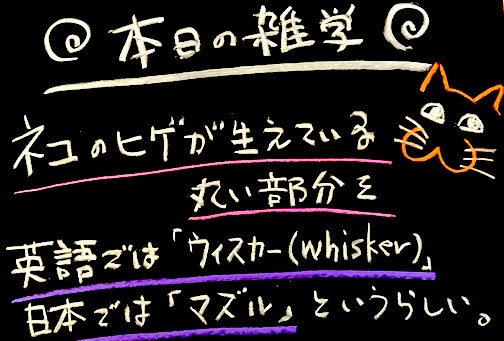 本日の雑学
ネコのヒゲが生えている
丸い部分を
英語では「ウィスカー(whisker)」
日本では「マズル」というらしい。